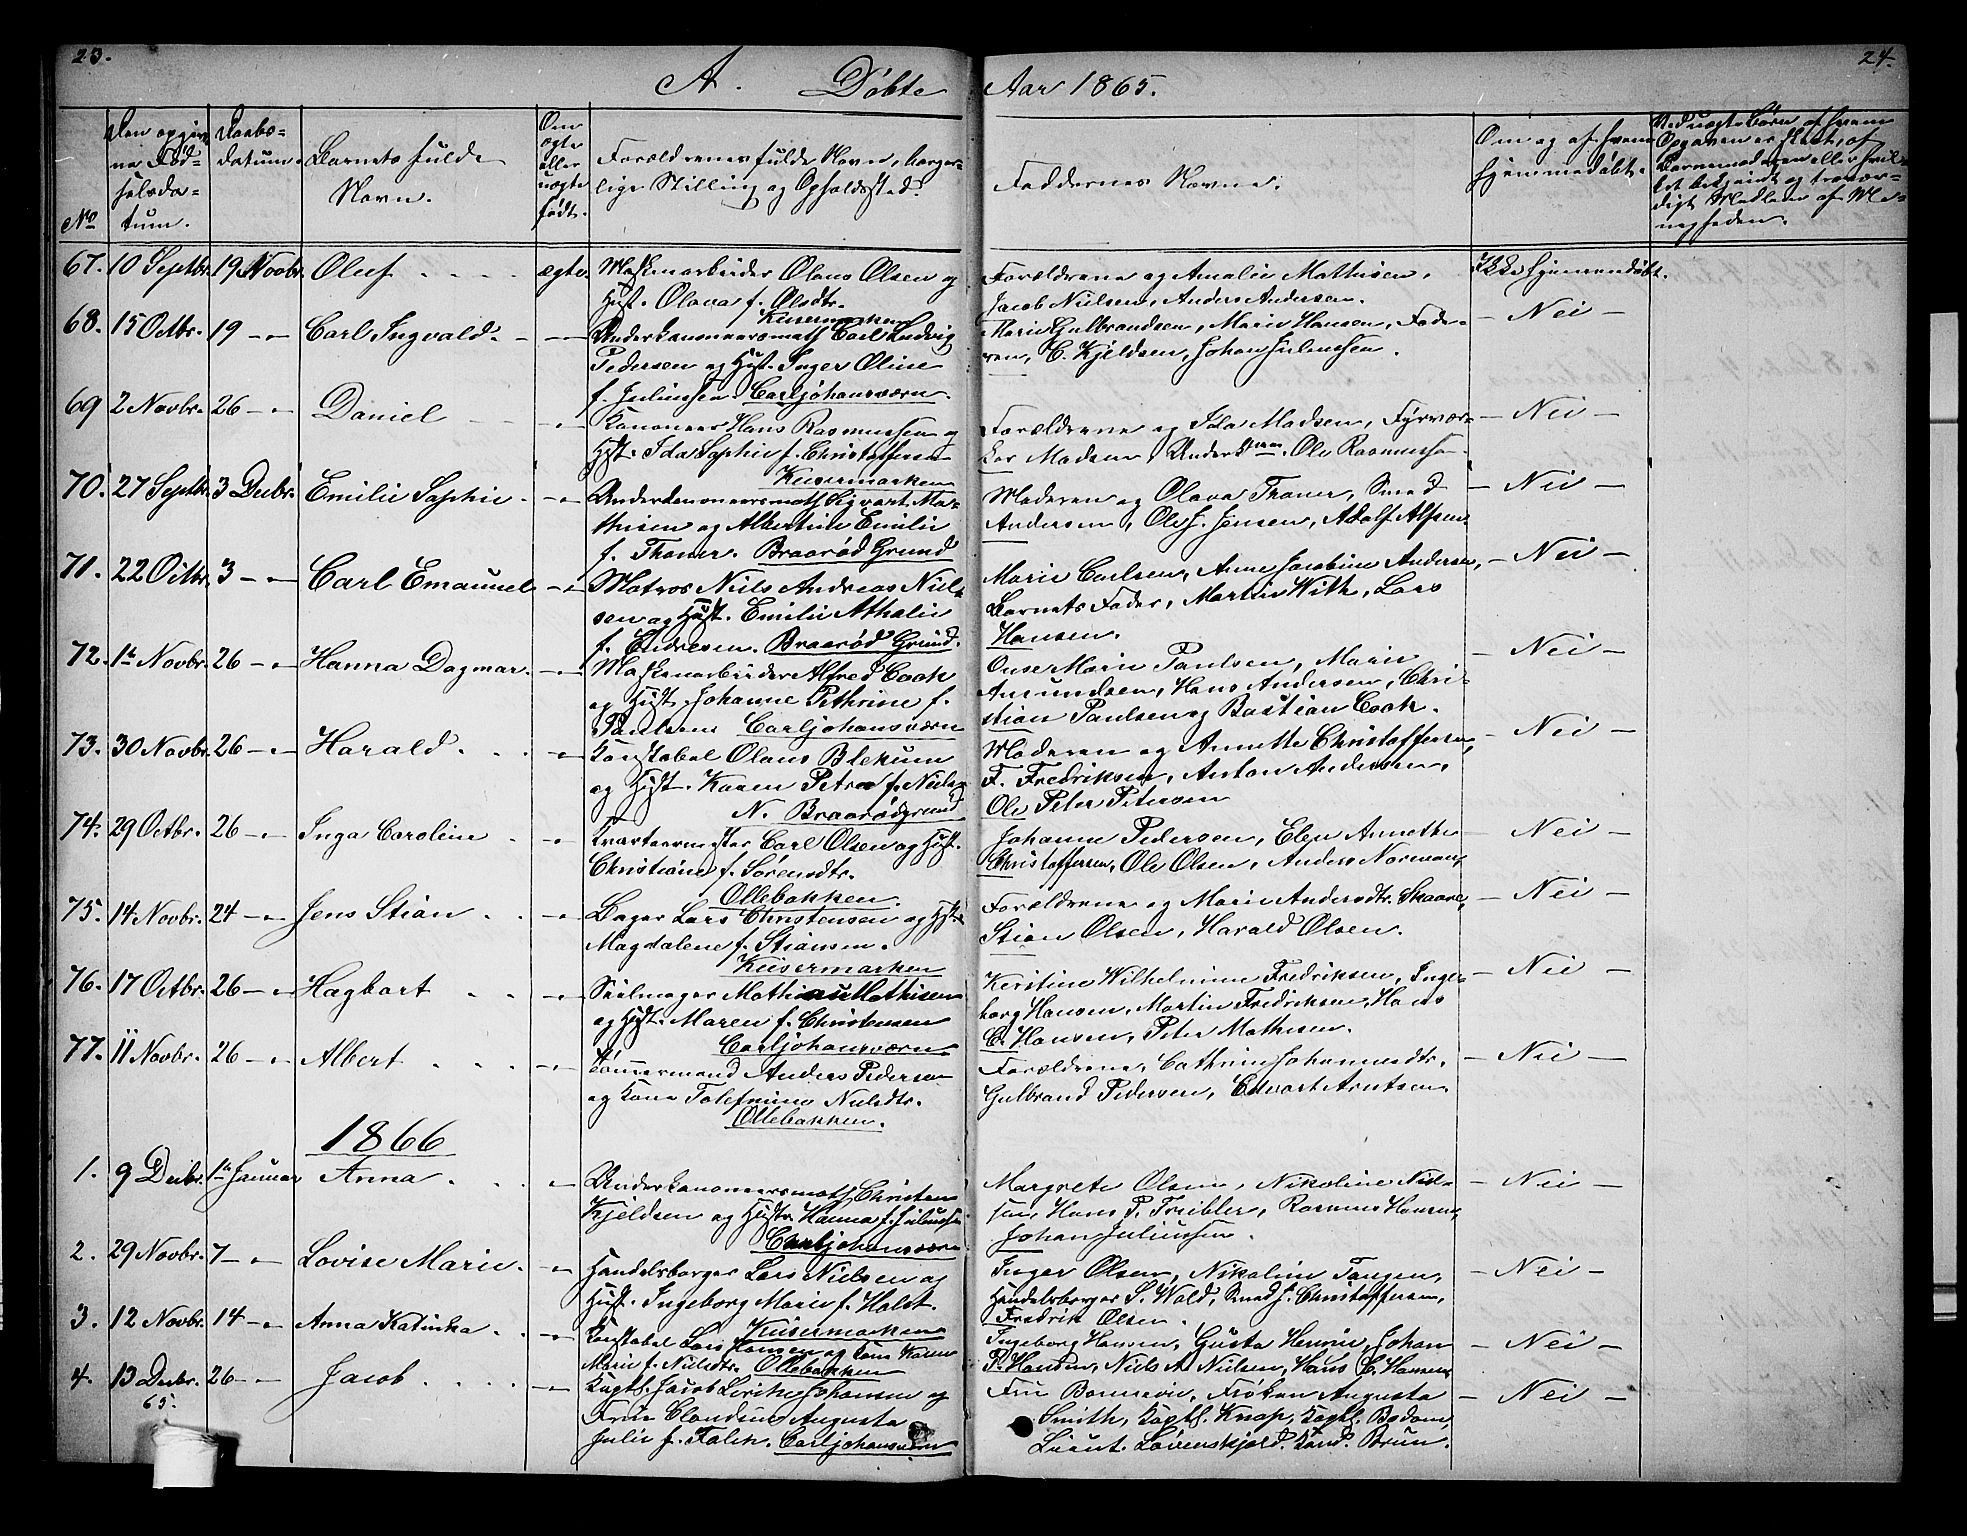 23.
A. Døbte
Aar 1865.
24.
No
Den opgivne Fødselsdatum.
Daabsdatum.
Barnets fulde Navn.
Om ægte eller uægte født.
Forældrenes fulde Navn, borgerlige Stilling og Opholdssted.
Faddernes Navne.
Om og af hvem hjemmedøbt.
67. 10 Septbr. 19 Novbr. Oluf ægte
Maskinarbeider Olaus Olsen og
Hust. Olava f. Olsdtr.
Keisermarken
Forældrene og Amalie Mathisen,
Jacob Nielsen, Anders Andersen.
Ikke hjemmedøbt.
68. 15 Octbr. 19 – Carl Ingvald
Underkanoneersmath Carl Ludvig
Pedersen og Hust. Inger Oline
f. Juliussen Carljohansværn.
Marie Gulbrandsen, Marie Hansen, Fade-
ren, C. Kjeldsen, Johan Juliussen.
– Nei –
69 2 Novbr. 26 – Daniel
Kanoneer Hans Rasmussen og
Hst. Ida Sophie f. Christoffersen
Keisermarken
Forældrene og Ida Madsen, Fyrvær-
ker Madsen, Underk Ole Rasmussen
– Nei –
70. 27 Septbr. 3 Decbr. Emilie Sophie
Underkanoneersmath Sigvart Ma-
thisen og Albertine Emilie
f. Thaner. Braarød Grund
Moderen og Olava Thaner, Smed
Andersen, Ole J. Jensen, Adolf Alfsen
– Nei –
71. 22 Octbr. 3 – Carl Emanuel
Matros Niels Andreas Niel-
sen og Hust. Emilie Athalie
f. Endresen. Braarød Grund.
Marie Carlsen, Anne Jacobine Andersen,
Barnets Fader, Martin With, Lars
Hansen.
– Nei –
72. 1te Novbr. 26 – Hanna Dagmar.
Maskinarbeider Alfred Cook
og Hust. Johanne Pethrine f.
Paulsen Carljohansværn
Onse Marie Paulsen, Marie
Amundsen, Hans Andersen, Chri-
stian Paulsen og Bastian Cook.
– Nei –
73. 30 Novbr. 26 – Harald.
Konstabel Olaus Blekum
og Hust. Karen Petra f. Niels
N. Braarødgrund
Moderen og Annette Christoffersen,
F. Fredriksen, Anton Andersen,
Ole Peter Petersen
– Nei –
74. 29 Octbr. 26 – Inga Caroline
Kvarteermester Carl Olsen og Hust.
Christiane f. Sørensdtr.
Ollebakken.
Johanne Pedersen, Elen Annethe
Christoffersen, Ole Olsen, Anders Norman,
– Nei –
75. 14 Novbr. 24 – Jens Stian
Bager Lars Christensen og Hst.
Magdalene f. Stiansen.
Keisermarken
Forældrene og Marie Andersdtr. Skaare,
Stian Olsen, Harald Olsen.
– Nei –
76. 17 Octbr. 26 – Hagbart
Seilmager Mathias Mathisen
og Hst. Maren f. Christensen
Carljohansværn
Kerstine Wilhelmine Fredriksen, Inge-
borg Hansen, Martin Fredriksen, Hans
C. Hansen, Peter Mathisen.
– Nei –
77. 11 Novbr. 26 – Albert
Tømmermand Anders Pedersen
og Kone Tolefmine Nielsdtr.
Ollebakken.
Forældrene, Cathrine Johannesdtr.
Gulbrand Pedersen, Edvart Arntsen.
– Nei –
1866
1. 9 Decbr. 1te Januar Anna
Underkanoneersmath Christen
Kjeldsen og Hustr. Hanna f. Juliussen
Carljohansværn
Margrete Olsen, Nikoline Niel-
sen, Hans P. Treibler, Rasmus Hansen,
Johan Juliussen.
– Nei –
2. 29 Novbr. 7 – Lovise Marie.
Handelsborger Lars Nielsen og
Hust. Ingeborg Marie f. Holst.
Keisermarken
Inger Olsen, Nikoline Tangen,
Handelsborger S. Wold, Smed J. Christoffersen,
Fredrik Olsen.
– Nei –
3. 12 Novbr. 14 – Anna Katinka
Konstabel Lars Hansen og Kone Karen
Marie f. Nielsdtr. Ollebakken
Ingeborg Hansen, Gusta Henrie, Johan
P. Hansen, Niels A. Nielsen, Hans C. Hansen,
– Nei –
4. 13 Decbr. 65. 26 – Jacob
Kaptl. Jacob Lerche Johansen og
Frue Claudine Augusta
Julie f. Falck. Carljohansværn
Frue Bonnevie, Frøken Augusta
Smith, Kaptl. Knap, Kaptl. Bodom,
Lieut. Løvenskjold. Kand. Brun.
– Nei –